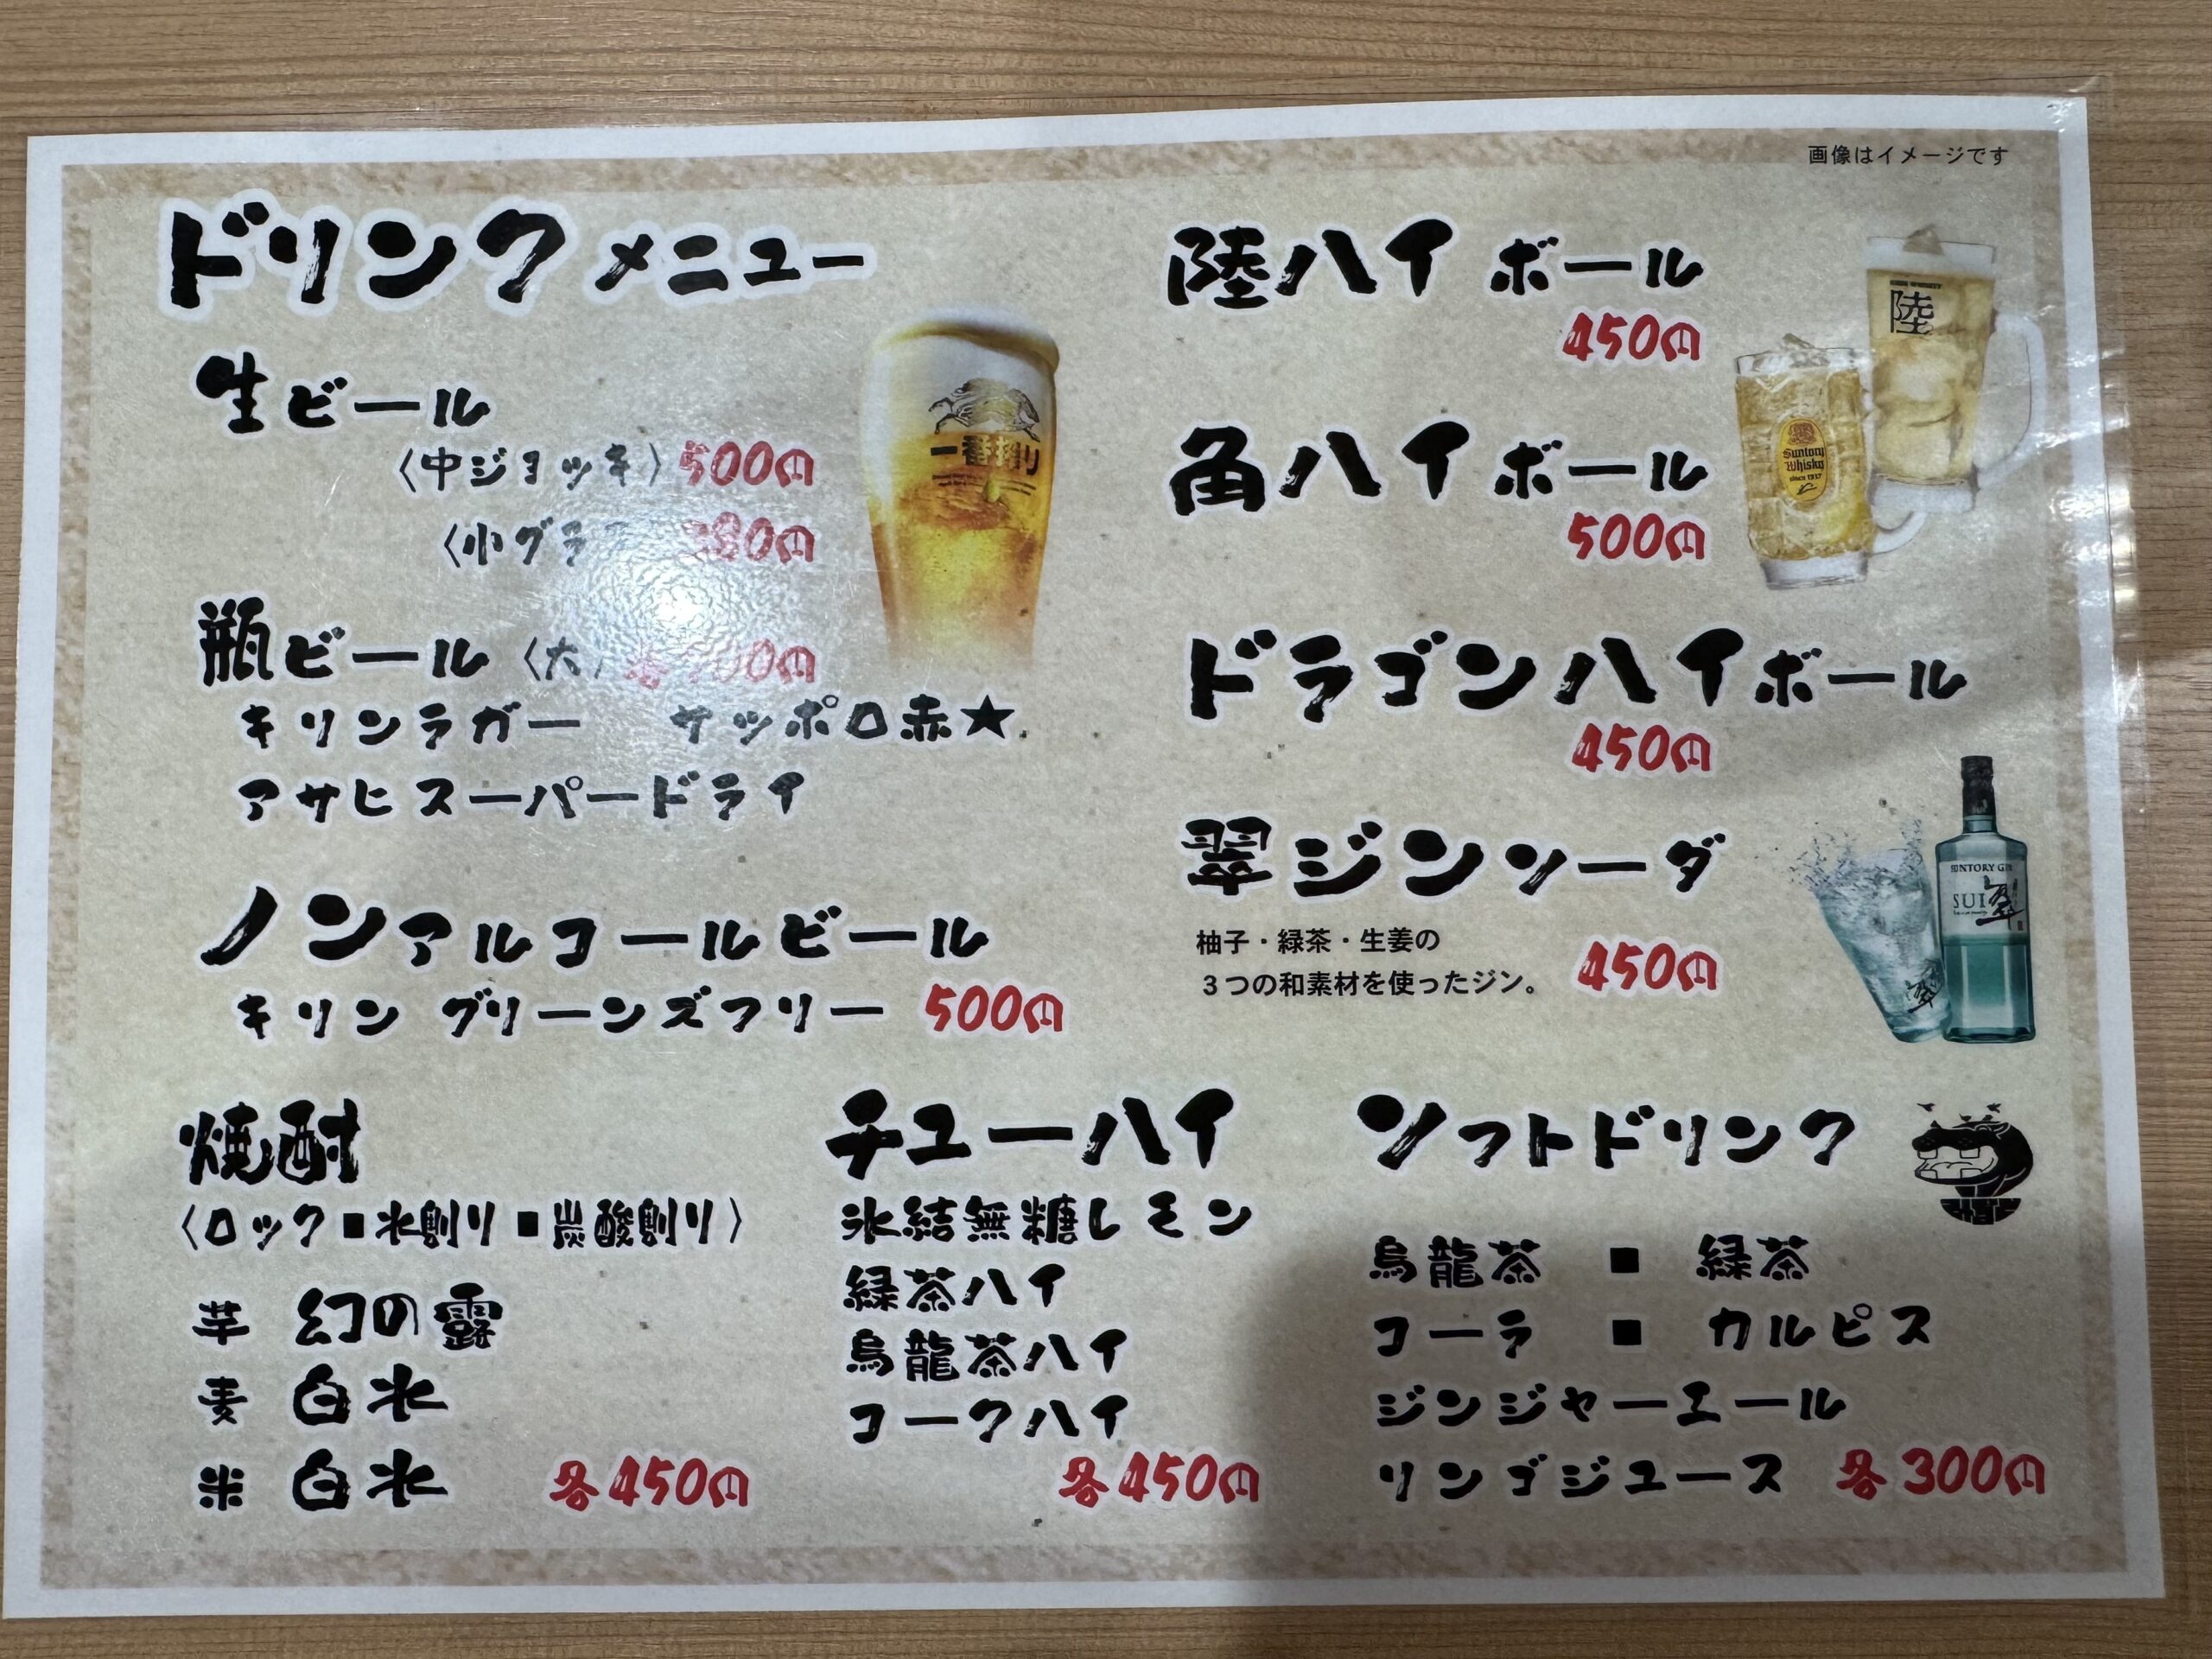 画像はイメージです
ドリンクメニュー
生ビール
〈中ジョッキ〉500円
〈小グラ 80円
瓶ビール〈大〉各 00円
キリンラガー サッポロ赤★
アサヒスーパードライ
ノンアルコールビール
キリン グリーンズフリー 500円
一番搾り
陸ハイボール
450円
角ハイボール
500円
陸
Suntory
Whisky
since 1937
ドラゴンハイボール
450円
翠ジンソーダ
柚子・緑茶・生姜の
3つの和素材を使ったジン。
450円
SUNTORY GIN
SUI
翠
焼酎
〈ロック■水割り■炭酸割り〉
芋 幻の露
麦 白水
米 白水 各450円
チューハイ
氷結無糖レモン
緑茶ハイ
烏龍茶ハイ
コークハイ
各450円
ソフトドリンク
烏龍茶 ■ 緑茶
コーラ ■ カルピス
ジンジャーエール
リンゴジュース 各300円